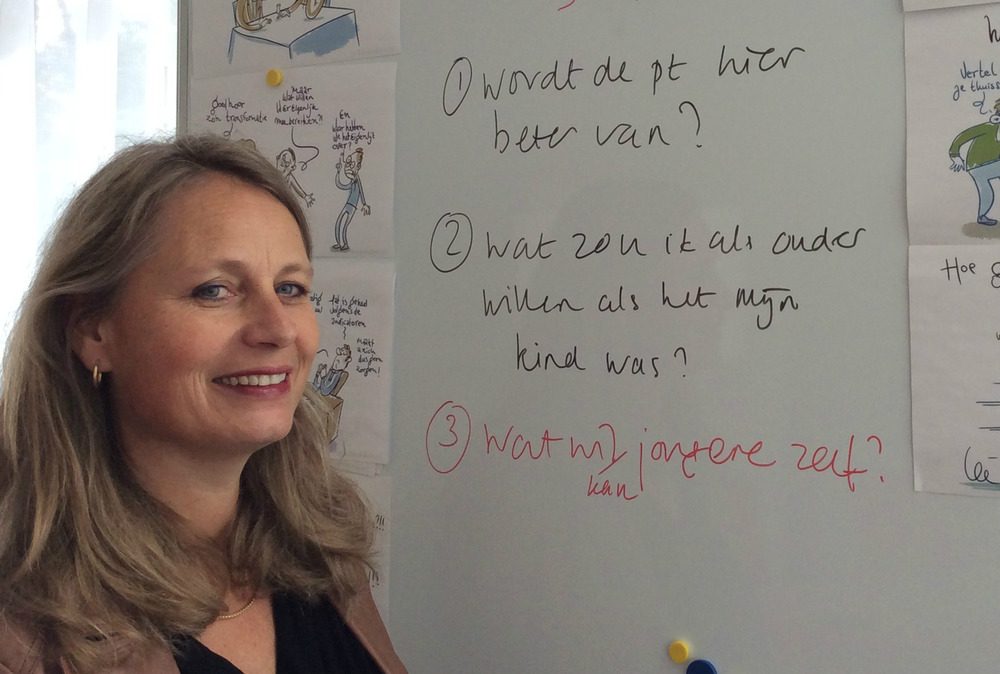 ① wordt de pt hier
beter van?
② wat zou ik als ouder
willen als het mijn
kind was?
③ wat wil jongere zelf?
kan
goed hoor
zo'n transformatie
Maar
wat willen
we eigenlijk
mee bereiken?!
En
waar hebben
we het eigenlijk
over?
Het is gehaad
volgens de
indicatoren
Maakt
u zich
dus geen
zorgen!
Vertel
je thuis
Hoe
?!!
!!!